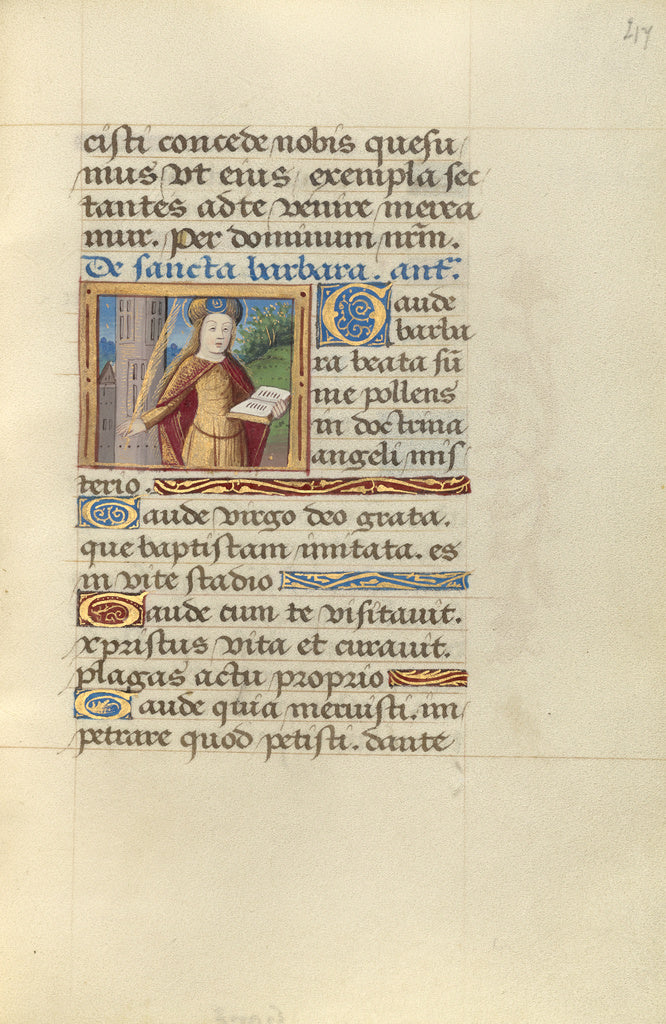 217
cisti concede nobis quesu
mus vt eius exempla sec
tantes ad te venire merea
mur. per dominum nrm̄.
De sancta barbara. ant̄.
Gaude
barba
ra beata sū
me pollens
in doctrina
angeli mis
terio.
Gaude virgo deo grata.
que baptistam imitata. es
in vite stadio
Gaude cum te visitauit.
xpristus vita et curauit.
plagas actu proprio
Gaude quia meruisti. im
petrare quod petisti. dante